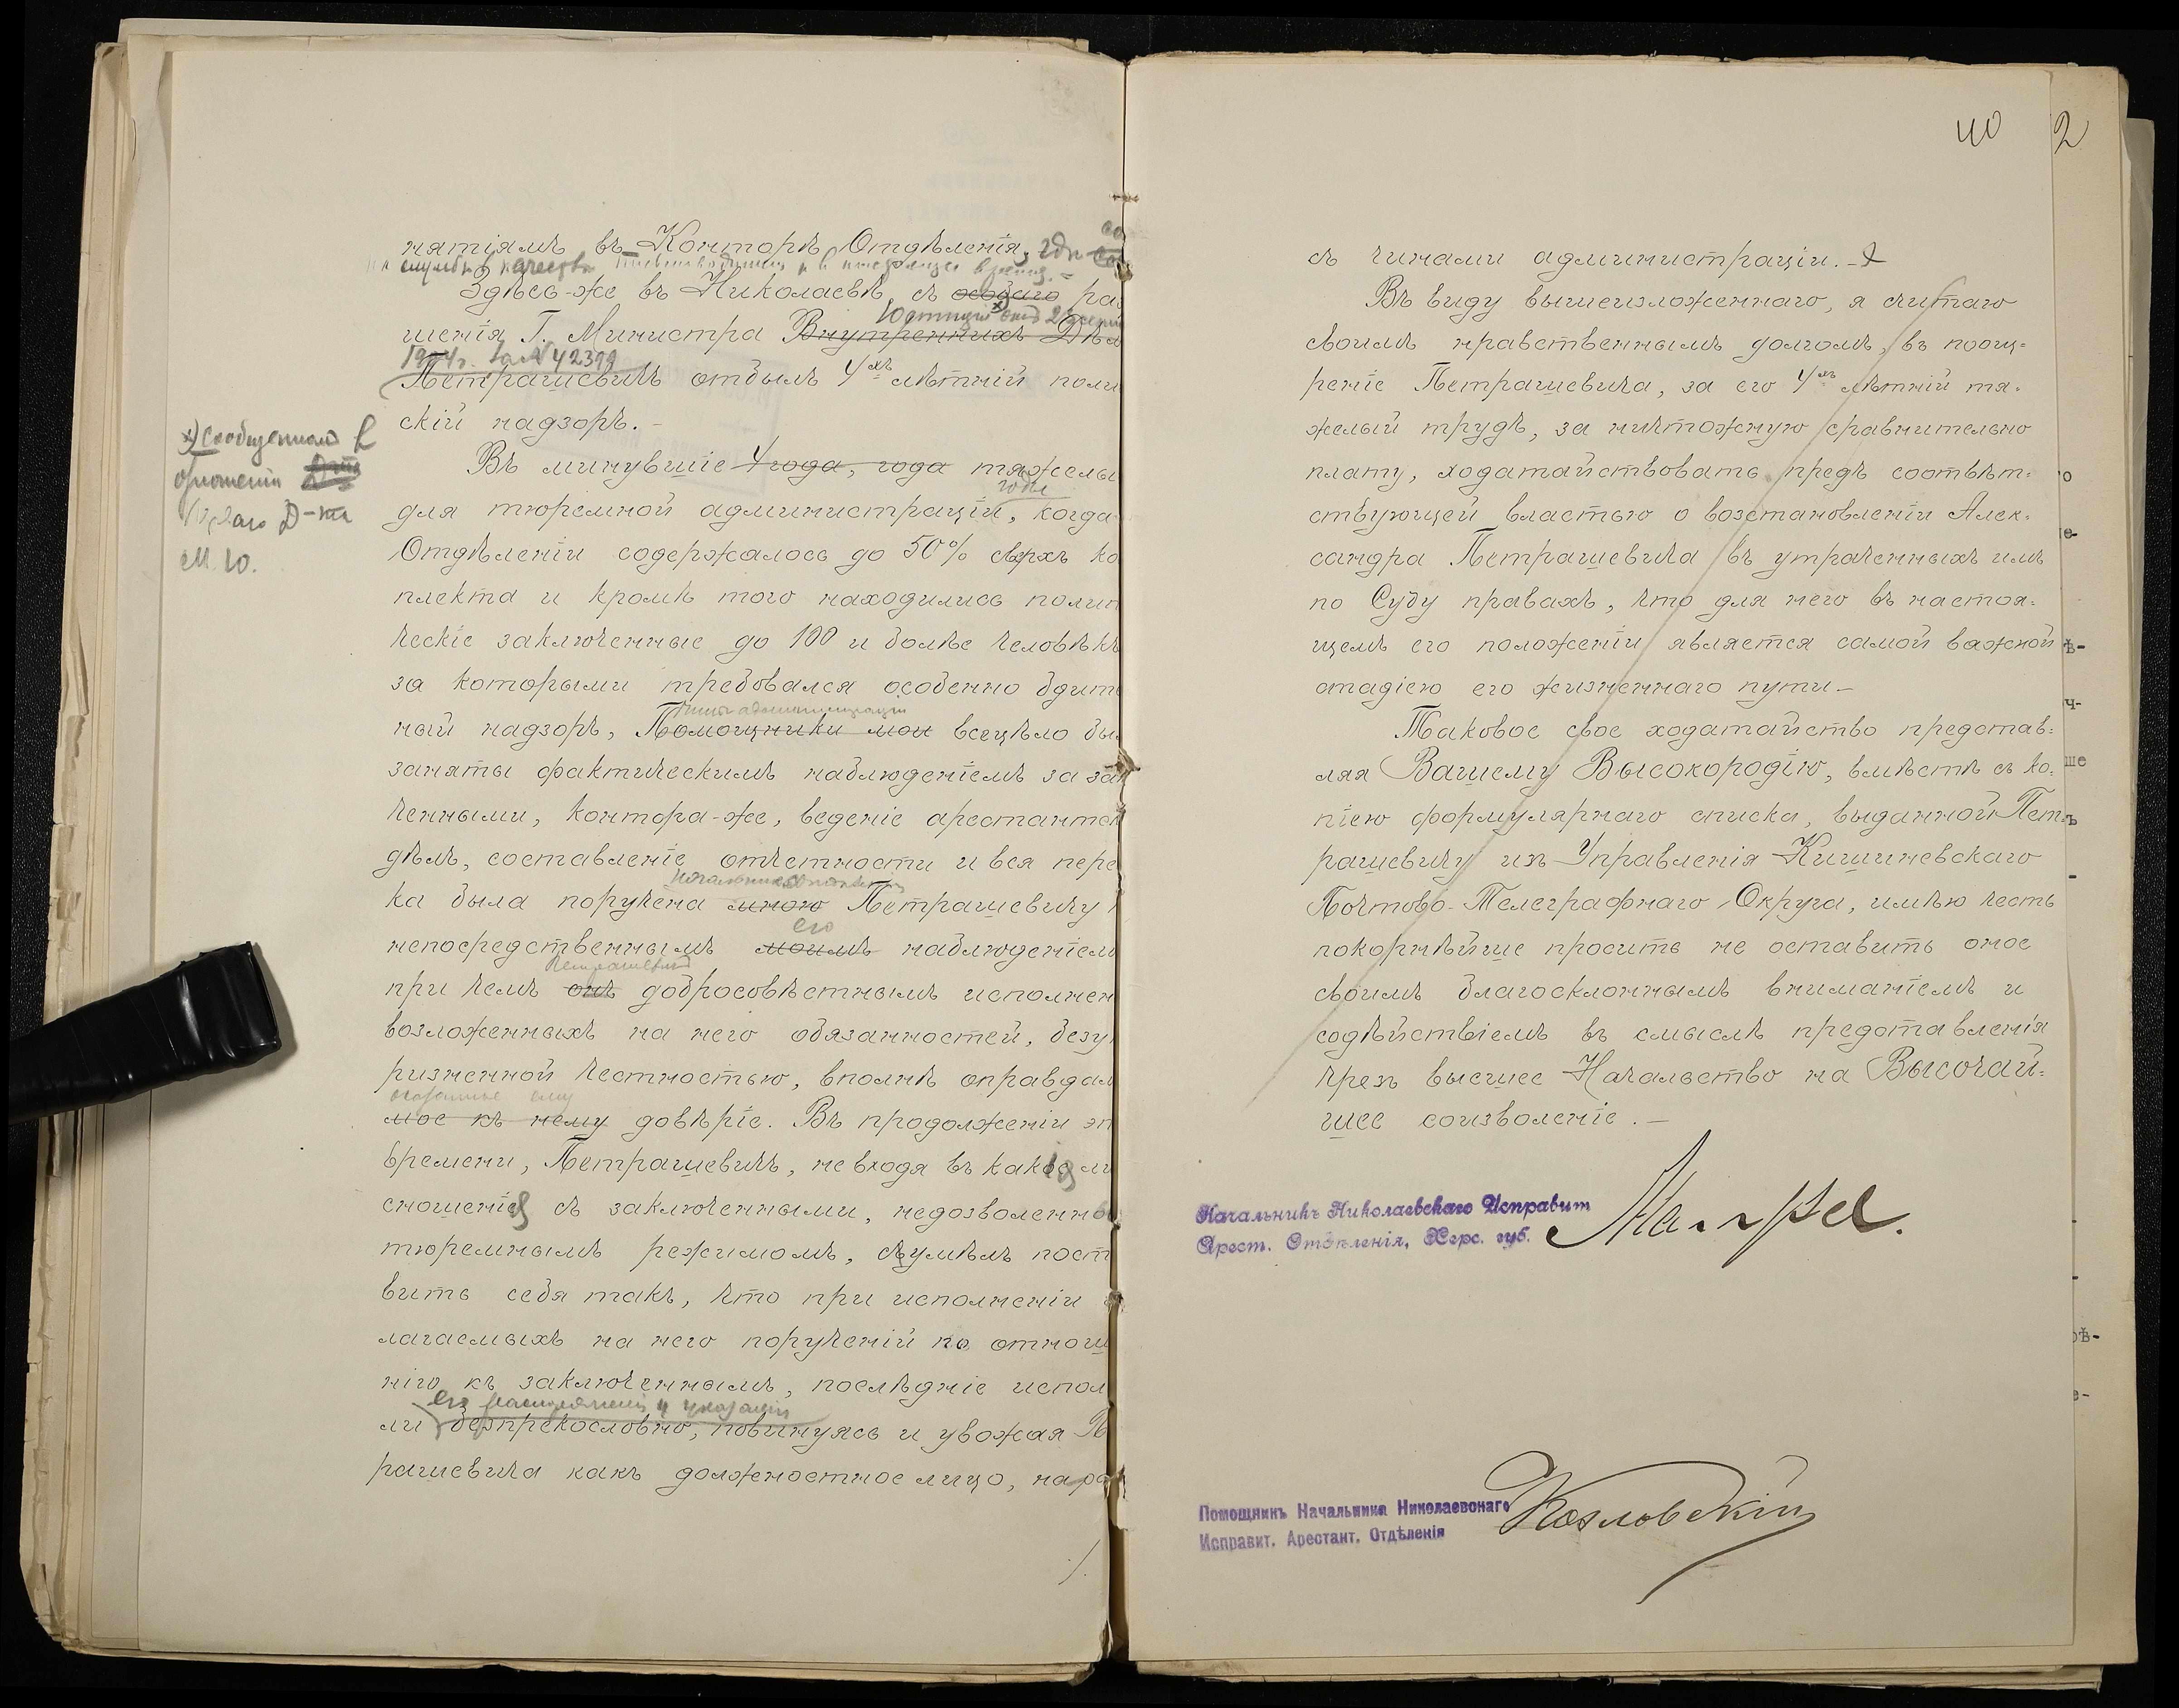 нятіямъ въ Конторѣ Отдѣленія, гдѣ
на службѣ въ качествѣ и въ настоящее время. –
Здѣсь-же въ Николаевѣ, съ особаго раз
Юстиціи
шенія Г. Министра Внутреннихъ Дѣлъ
1904 г. за № 42399
Петрашевичъ отбылъ 4хъ лѣтній поли
скій надзоръ. –
х) сообщеннаго въ
отношеніи
Д-та
М. Ю.
Въ минувшіе 4 года, года тяжелы
годы
для тюремной администраціи, когда
Отдѣленіи содержалось до 50% сверхъ ко
плекта и кромѣ того находились полит
ческіе заключенные до 100 и болѣе человѣкъ
за которыми требовался особенно бдит
чины администраціи
ный надзоръ, Помощники мои всецѣло бы
заняты фактическимъ наблюденіемъ за зак
ченными, контора-же, веденіе арестантск
дѣлъ, составленіе отчетности и вся пере
начальникомъ отдѣленія
ка была поручена мною Петрашевичу
его
непосредственнымъ моимъ наблюденіем
Петрашевичъ
при чемъ онъ добросовѣстнымъ исполнен
возложенныхъ на него обязанностей, безу
ризненной честностью, вполнѣ оправдал
оказанное ему
мое къ нему довѣріе. Въ продолженіи эт
времени, Петрашевичъ, не входя въ какія ли
сношенія съ заключенными, недозволенно
тюремнымъ режимомъ, съумѣлъ пост
вить себя такъ, что при исполненіи
лагаемыхъ на него порученій по отнош
нію къ заключеннымъ, послѣдніе испол
его распоряженія и указанія
ли безпрекословно, повинуясь и уважая П
рашевича какъ должностное лицо, на ра
./.
40 2
съ чинами администраціи. –
Въ виду вышеизложеннаго, я считаю
своимъ нравственнымъ долгомъ, въ поощ-
реніе Петрашевича, за его 4хъ лѣтній тя-
желый трудъ, за ничтожную сравнительно
плату, ходатайствовать предъ соотвѣт-
ствующей властью о возстановленіи Алек-
сандра Петрашевича въ утраченныхъ имъ
по Суду правахъ, что для него въ настоя-
щемъ его положеніи является самой важной
стадіею его жизненнаго пути –
Таковое свое ходатайство представ-
ляя Вашему Высокородію, вмѣстѣ съ ко-
піею формулярнаго списка, выданной Пет-
рашевичу изъ Управленія Кишиневскаго
Почтово-Телеграфнаго Округа, имѣю честь
покорнѣйше просить не оставить оное
своимъ благосклоннымъ вниманіемъ и
содѣйствіемъ въ смыслѣ представленія
чрезъ высшее Начальство на Высочай-
шее соизволеніе. –
Начальникъ Николаевскаго Исправит
Арест. Отдѣленія, Херс. губ.
Помощникъ Начальника Николаевскаго
Исправит. Арестант. Отдѣленія
Козловскій